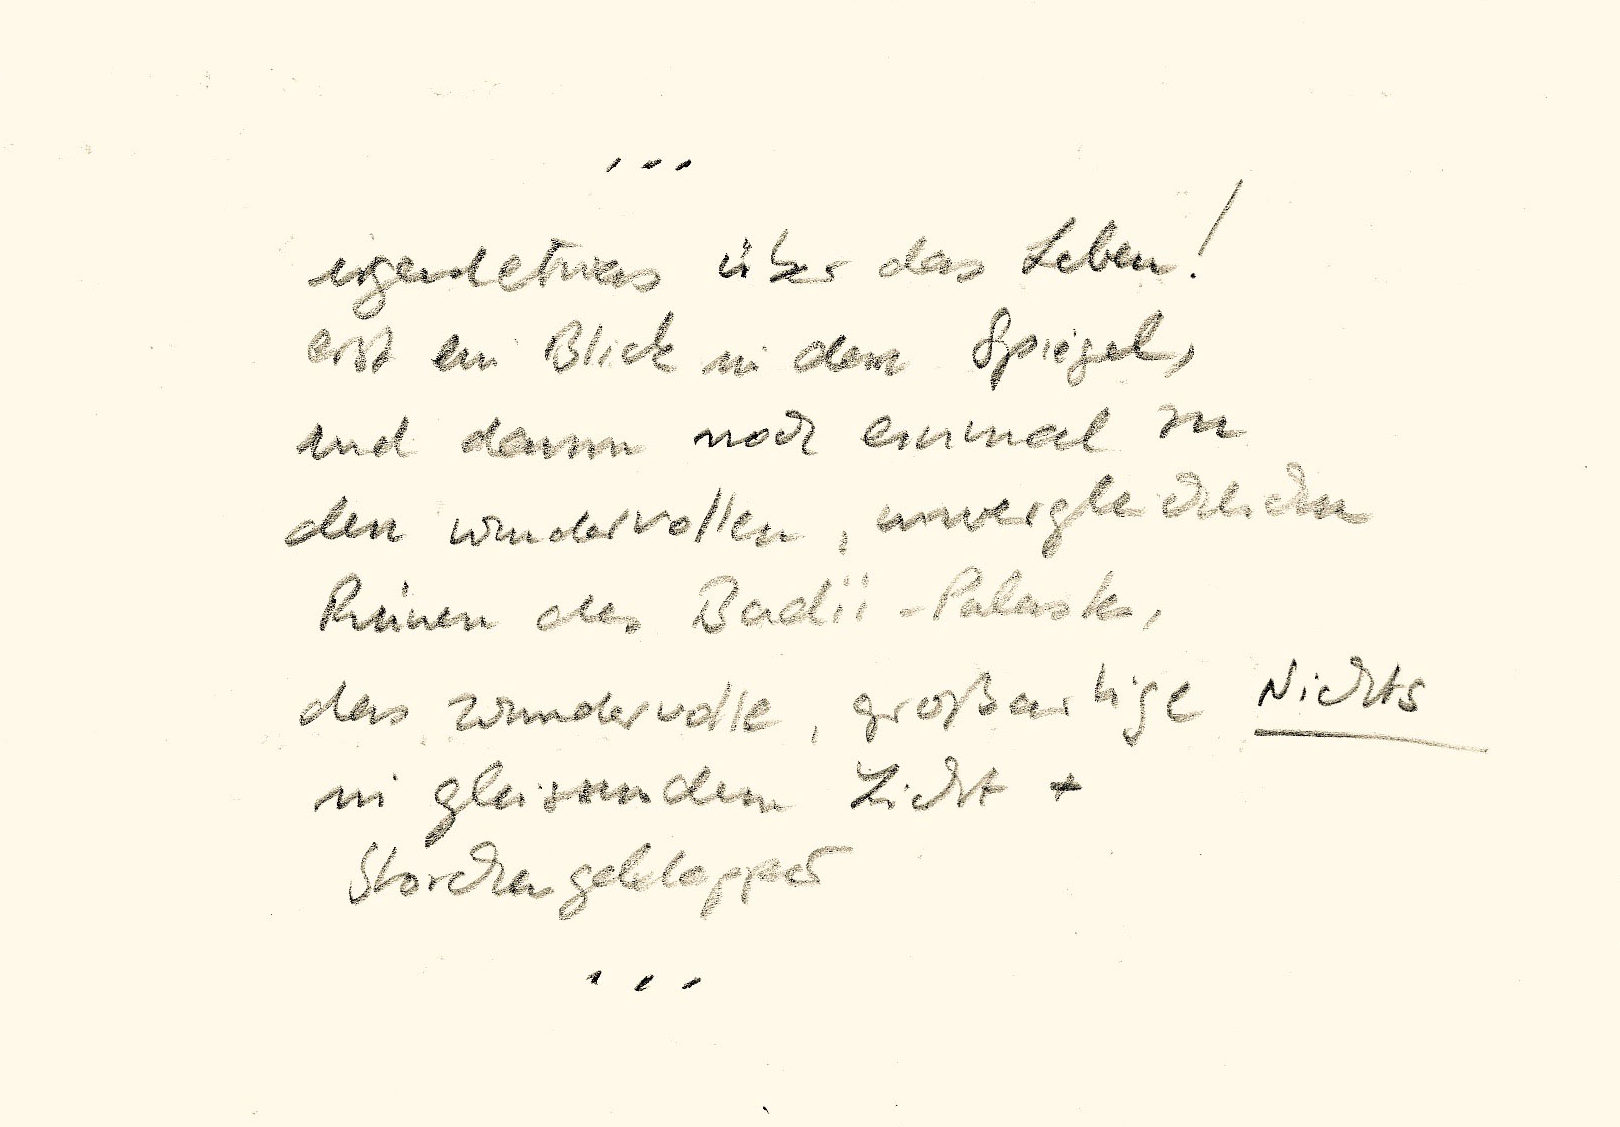 ...
irgendetwas über das Leben!
erst ein Blick in den Spiegel,
und dann noch einmal zu
den wundervollen, unvergleichlichen
Ruinen des Badii-Palasts,
das wundervolle, großartige Nichts
in gleissendem Licht +
Storchengeklapper
...